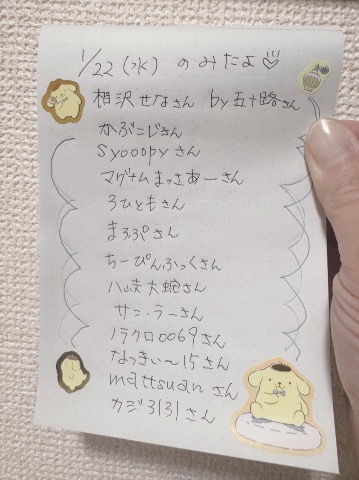 1/22(水) のみたよ♡
相沢せなさん by五十路さん
かぶこじさん
syooopyさん
マグナムまっさあーさん
ろひともさん
まろぷさん
ちーぴんふっくさん
八岐大蛇さん
サニ・ラーさん
ノラクロ0069さん
なっきぃ〜15さん
mattsuanさん
カジ3131さん